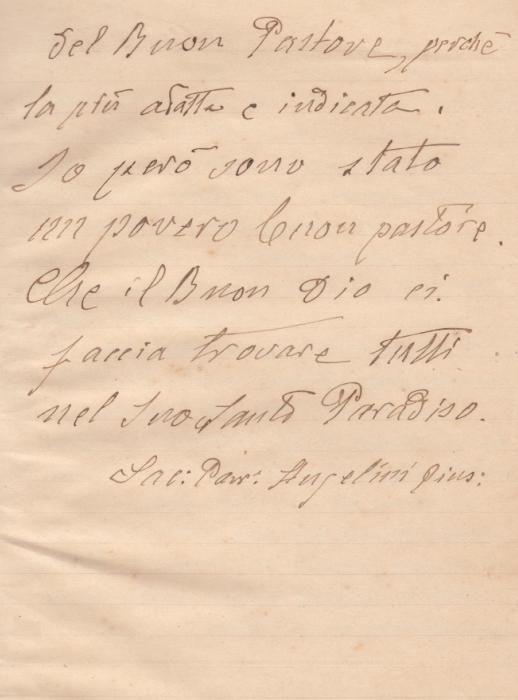 del Buon Pastore, perchè
la più adatta e indicata.
Io però sono stato
un povero buon pastore.
Che il Buon Dio ci
faccia trovare tutti
nel Suo Santo Paradiso.
Sac: Parr: Angelini Gius: